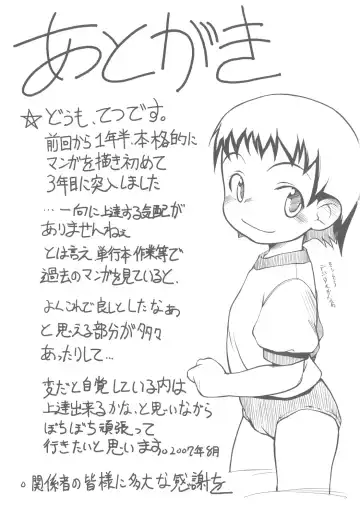 あとがき
☆どうも、てつです。
前回から1年半、本格的に
マンガを描き初めて
3年目に突入しました
…一向に上達する気配が
ありませんねぇ
とは言え、単行本作業等で
過去のマンガを見ていると、
よくこれで良しとしたなぁ
と思える部分が多々
あったりして…
変だと自覚している内は
上達出来るかな、と思いながら
ぼちぼち頑張って
行きたいと思います。2007年8月
。関係者の皆様に多大な感謝を